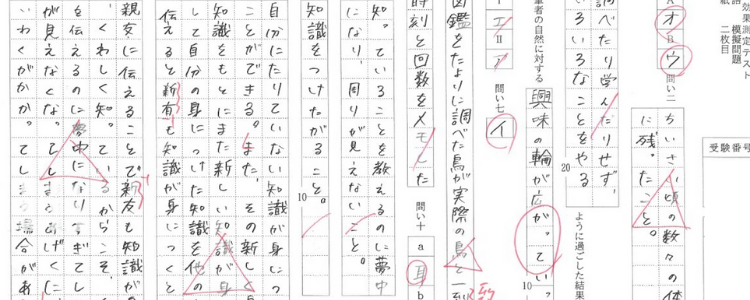 効果測定テスト
模擬問題
二枚目
受験番号
A オ B ウ 問い二
ちいさい頃の数々の体
に残ったこと。
調べたり学んだりせず、
いろいろなことをやる
20
ように過ごした結果
筆者の自然に対する
興味の輪が広がっていっ
10
I エ II ア 問い七 イ
図鑑をたよりに調べた鳥が実際の鳥と一致
時刻と回数をメモした
問い十 a 耳 b
知っていることを教えるのに夢中
になり、周りが見えないこと。
知識をつけたがること。
10
自分に足りていない知識が身につ
ことができる。また、その新しく
知識をもとにまた新しい知識が身
して自分の身につけた知識を他の
伝えると新有も知識が身につくと
親友に伝えることで親友も知識が
くわしく知っているからこそ、
を伝えるのに夢中になりすぎて
が見えなくなってしまうあげくに
いわくがかかってしまう場合があ